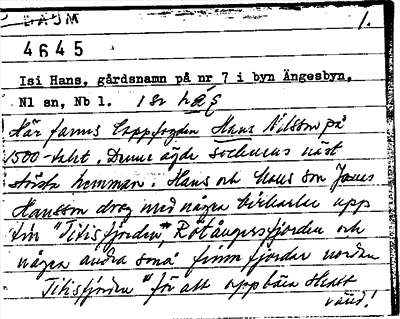 DAUM
1.
4645
Isi Hans, gårdsnamn på nr 7 i byn Ängesbyn,
Nl sn, Nb l.
Här fanns Lappfogden Hans Nilsson på
1500-talet. Denne ägde socknens näst
största hemman. Hans och hans son Jöns
Hansson drog med några birkarlar upp
till "Titisfjorden", Rötångersfjorden och
några andra små finnfjordar norden
Titisfjorden" för att uppbära skatt
vänd!